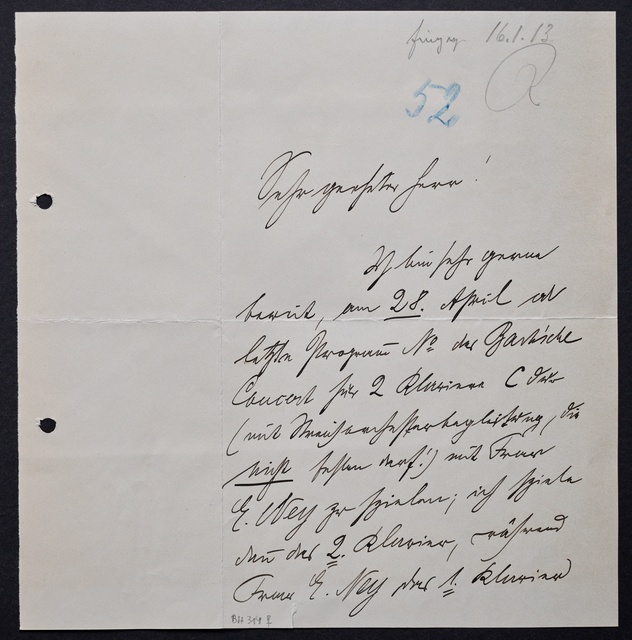 16.1.13
52
Sehr geehrter Herr!
Ich bin sehr gerne
bereit, am 28. April als
letzte Programm No das Bach'sche
Concert für 2 Klaviere C dur
(mit Streichorchesterbegleitung, die
nicht fehlen darf!) mit Frau
E. Ney zu spielen; ich spiele
dann das 2. Klavier, während
Frau E. Ney das 1. Klavier
BH 309